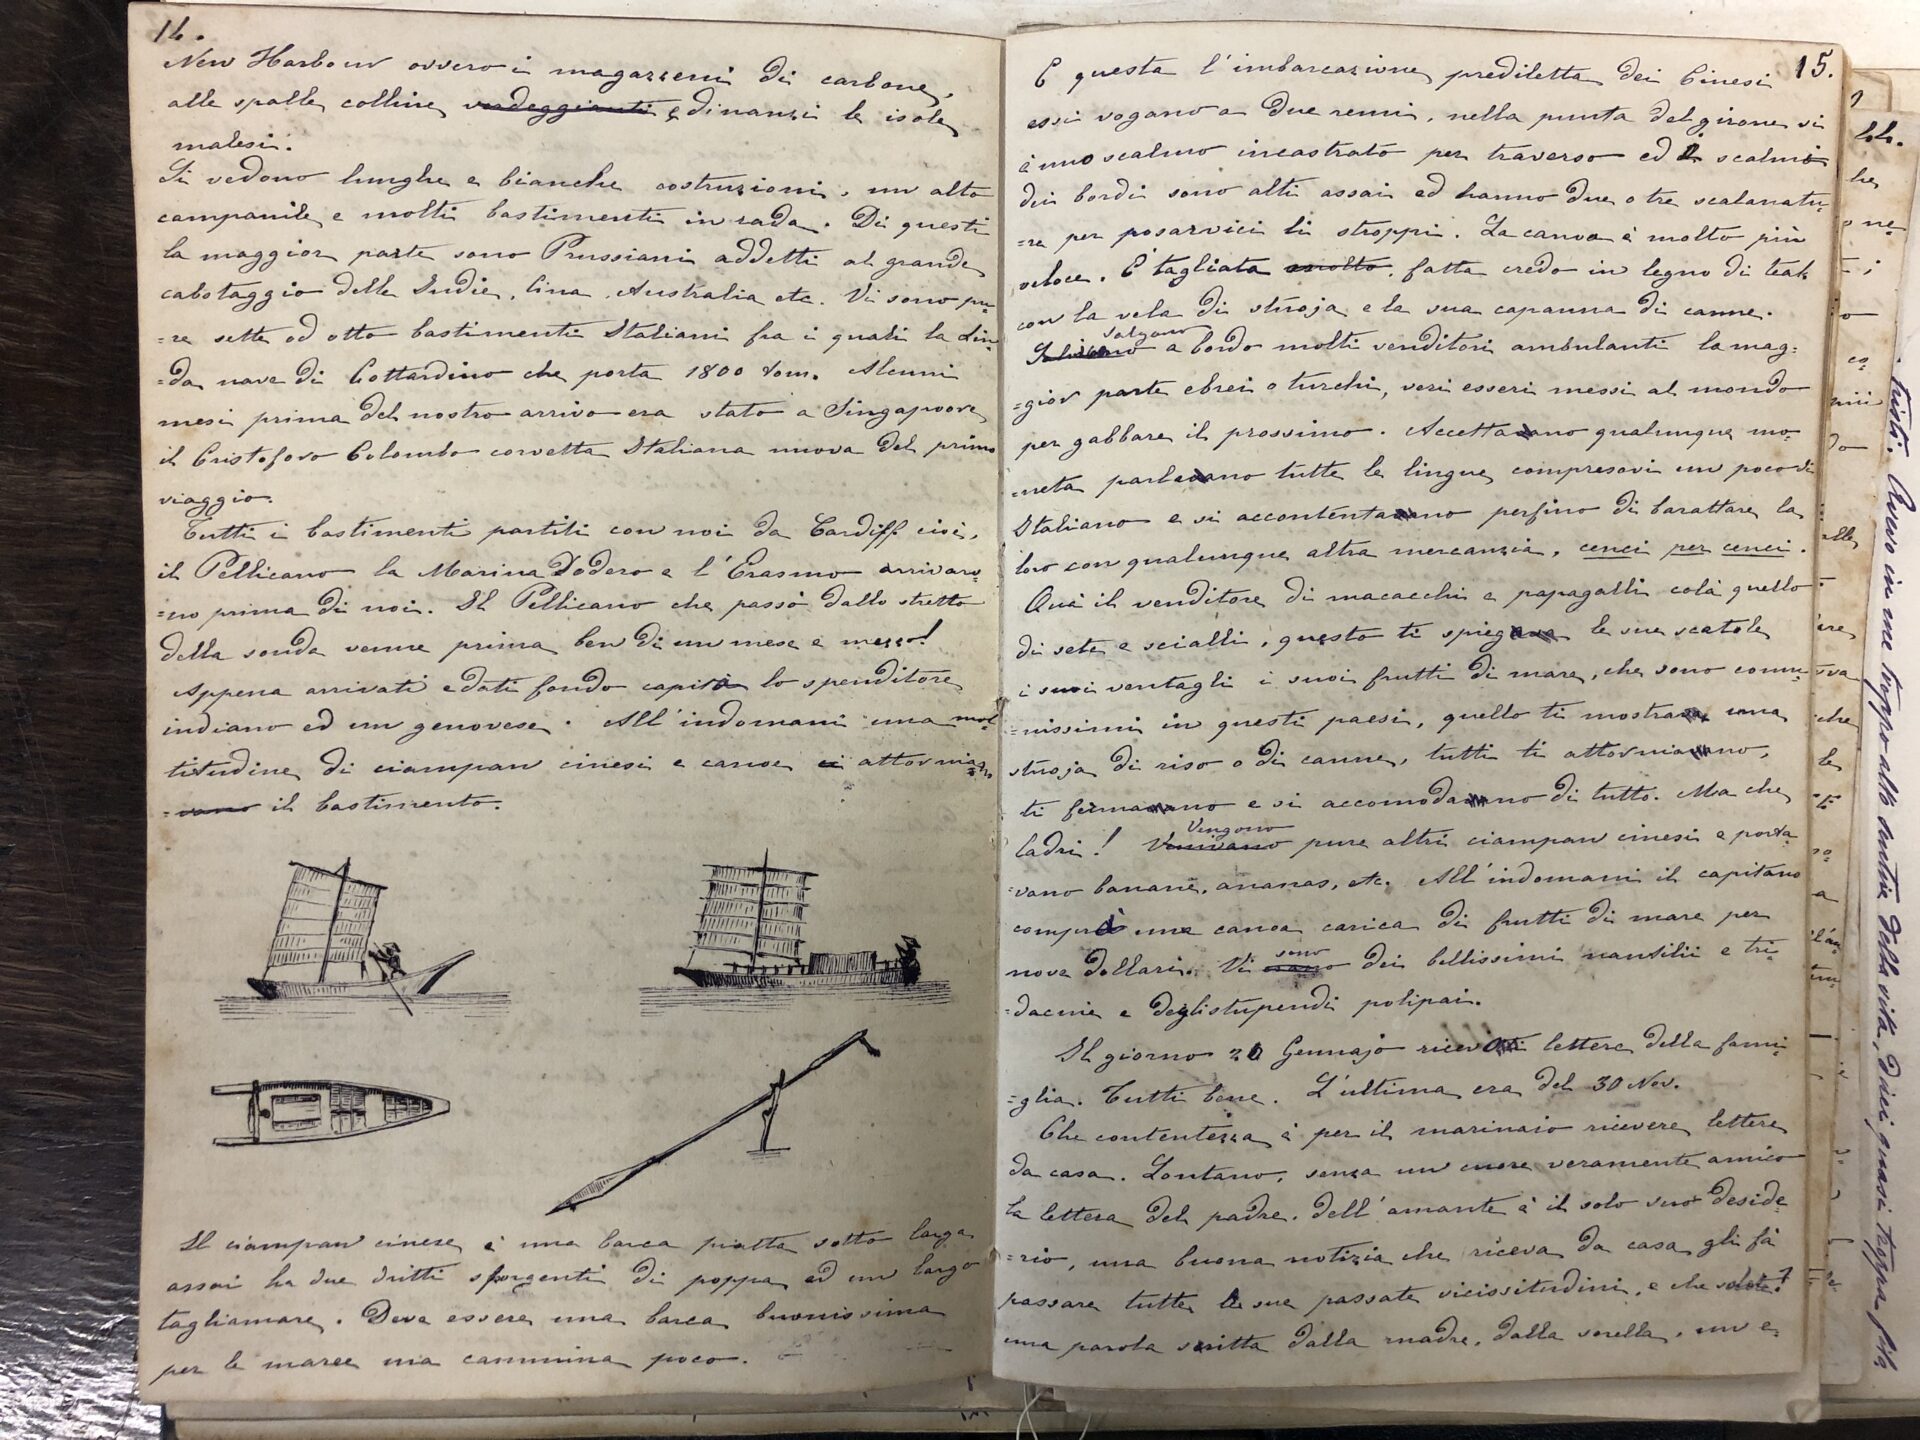 14.
New Harbour ovvero i magazzeni di carbone,
alle spalle colline verdeggianti e dinanzi le isole
malesi.
Si vedono lunghe e bianche costruzioni, un alto
campanile e molti bastimenti in rada. Di questi
la maggior parte sono Prussiani addetti al grande
cabotaggio delle Indie, Cina, Australia etc. Vi sono pu=
=re sette od otto bastimenti Italiani fra i quali la Lin=
=da nave di Gottardino che porta 1800 tom. Alcuni
mesi prima del nostro arrivo era stato a Singapoore
il Cristoforo Colombo corvetta Italiana nuova del primo
viaggio.
Tutti i bastimenti partiti con noi da Cardiff cioè,
il Pellicano la Marina Dodero e l'Erasmo arrivaro=
=no prima di noi. Il Pellicano che passò dallo stretto
della sonda venne prima ben di un mese e mezzo!
Appena arrivati e dati fondo capitò lo spenditore
indiano ed un genovese. All'indomani una mol
titudine di ciampan cinesi e canoe ci attornia=
=vano il bastimento.
Il ciampan cinese è una barca piatta sotto larga
assai ha due dritti sporgenti di poppa ed un largo
tagliamare. Deve essere una barca buonissima
per le maree ma cammina poco.
15.
E questa l'imbarcazione prediletta dei Cinesi
essi vogano a due remi, nella punta del girone vi
è uno scalmo incastrato per traverso ed i scalmi
dei bordi sono alti assai ed hanno due o tre scalanatu=
=re per posarvici li stroppi. La canoa è molto più
veloce. E' tagliata molto, fatta credo in legno di teak
con la vela di stuoja e la sua capanna di canne.
Salgono
a bordo molti venditori ambulanti la mag=
=gior parte ebrei o turchi, veri esseri messi al mondo
per gabbare il prossimo. Accettavano qualunque mo=
=neta parlavano tutte le lingue compresovi un poco di
Italiano e si accontentavano perfino di barattare la
loro con qualunque altra mercanzia, cenci per cenci.
Quà il venditore di macacchi e papagalli colà quello
di sete e scialli, questo ti spiegava le sue scatole
i suoi ventagli i suoi frutti di mare, che sono comu=
=nissimi in questi paesi, quello ti mostrava una
stuoja di riso o di canne, tutti ti attorniavano,
ti fermavano e si accomodavano di tutto. Ma che
Vengono
ladri! Venivano pure altri ciampan cinesi e porta=
=vano banane, ananas, etc. All'indomani il capitano
comprò una canoa carica di frutti di mare per
sono
nove dollari. Vi erano dei bellissimi nautilii e tri=
=dacnie e degli stupendi polipai.
Il giorno 20 Gennajo lettere della fami=
=glia. Tutti bene. L'ultima era del 30 Nov.
Che contentezza è per il marinaio ricevere lettere
da casa. Lontano, senza un cuore veramente amico
la lettera del padre, dell'amante è il solo suo deside=
=rio, una buona notizia che riceva da casa gli fà
passare tutte le sue passate vicissitudini, e che volete?
una parola scritta dalla madre, dalla sorella, un e=
tristi. Avevo in me troppo alto sentire della vita, direi quasi troppa